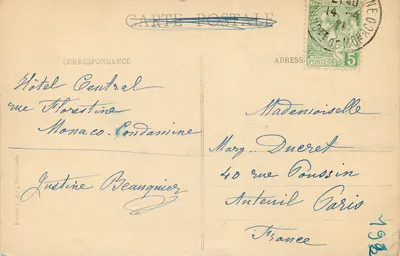 CARTE POSTALE
CORRESPONDANCE
ADRESSE
14-4
5
Hôtel Central
rue Florestine
Monaco-Condamine
Justine Beauquier
Mademoiselle
Marg. Ducret
40 rue Poussin
Auteuil Paris
France